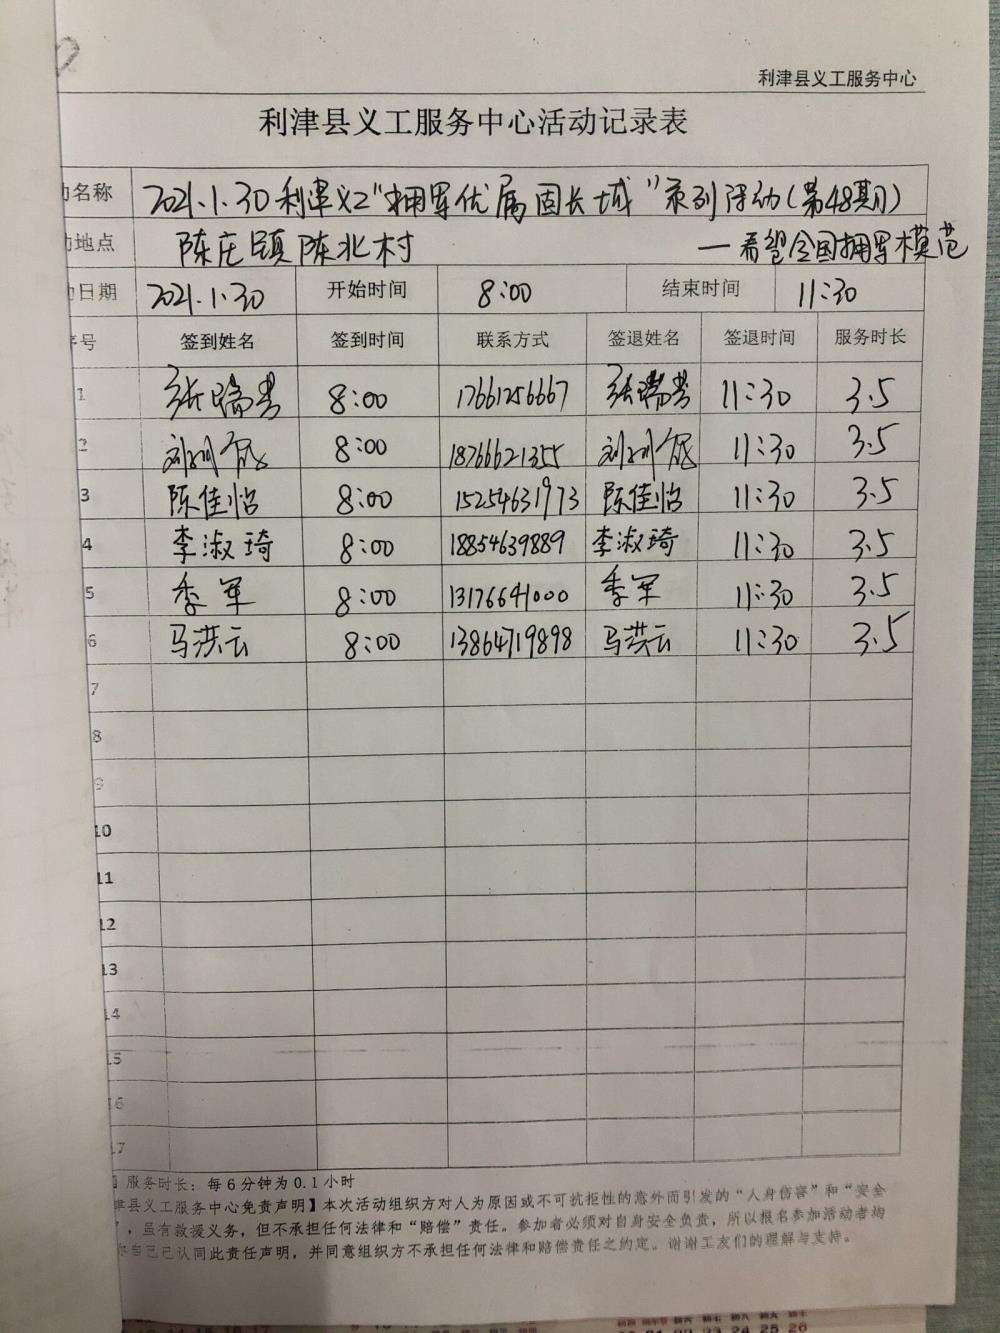 利津县义工服务中心
利津县义工服务中心活动记录表
名称 2021.1.30利津义工"拥军优属固长城"系列活动(第48期)
地点 陈庄镇陈北村 —看望全国拥军模范
日期 2021.1.30 开始时间 8:00 结束时间 11:30
序号 签到姓名 签到时间 联系方式 签退姓名 签退时间 服务时长
1 张瑞 8:00 17661256667 张瑞 11:30 3.5
2 刘 8:00 18766621355 刘 11:30 3.5
3 陈佳怡 8:00 15254631973 陈佳怡 11:30 3.5
4 李淑琦 8:00 18854639889 李淑琦 11:30 3.5
5 季军 8:00 13176641000 季军 11:30 3.5
6 马洪云 8:00 13864719898 马洪云 11:30 3.5
7
8
9
10
11
12
13
14
15
16
17
服务时长：每6分钟为0.1小时
津县义工服务中心免责声明】本次活动组织方对人为原因或不可抗拒性的意外而引发的“人身伤害”和“安全
”，虽有救援义务，但不承担任何法律和“赔偿”责任。参加者必须对自身安全负责，所以报名参加活动者均
自己已认同此责任声明，并同意组织方不承担任何法律和赔偿责任之约定。谢谢工友们的理解与支持。